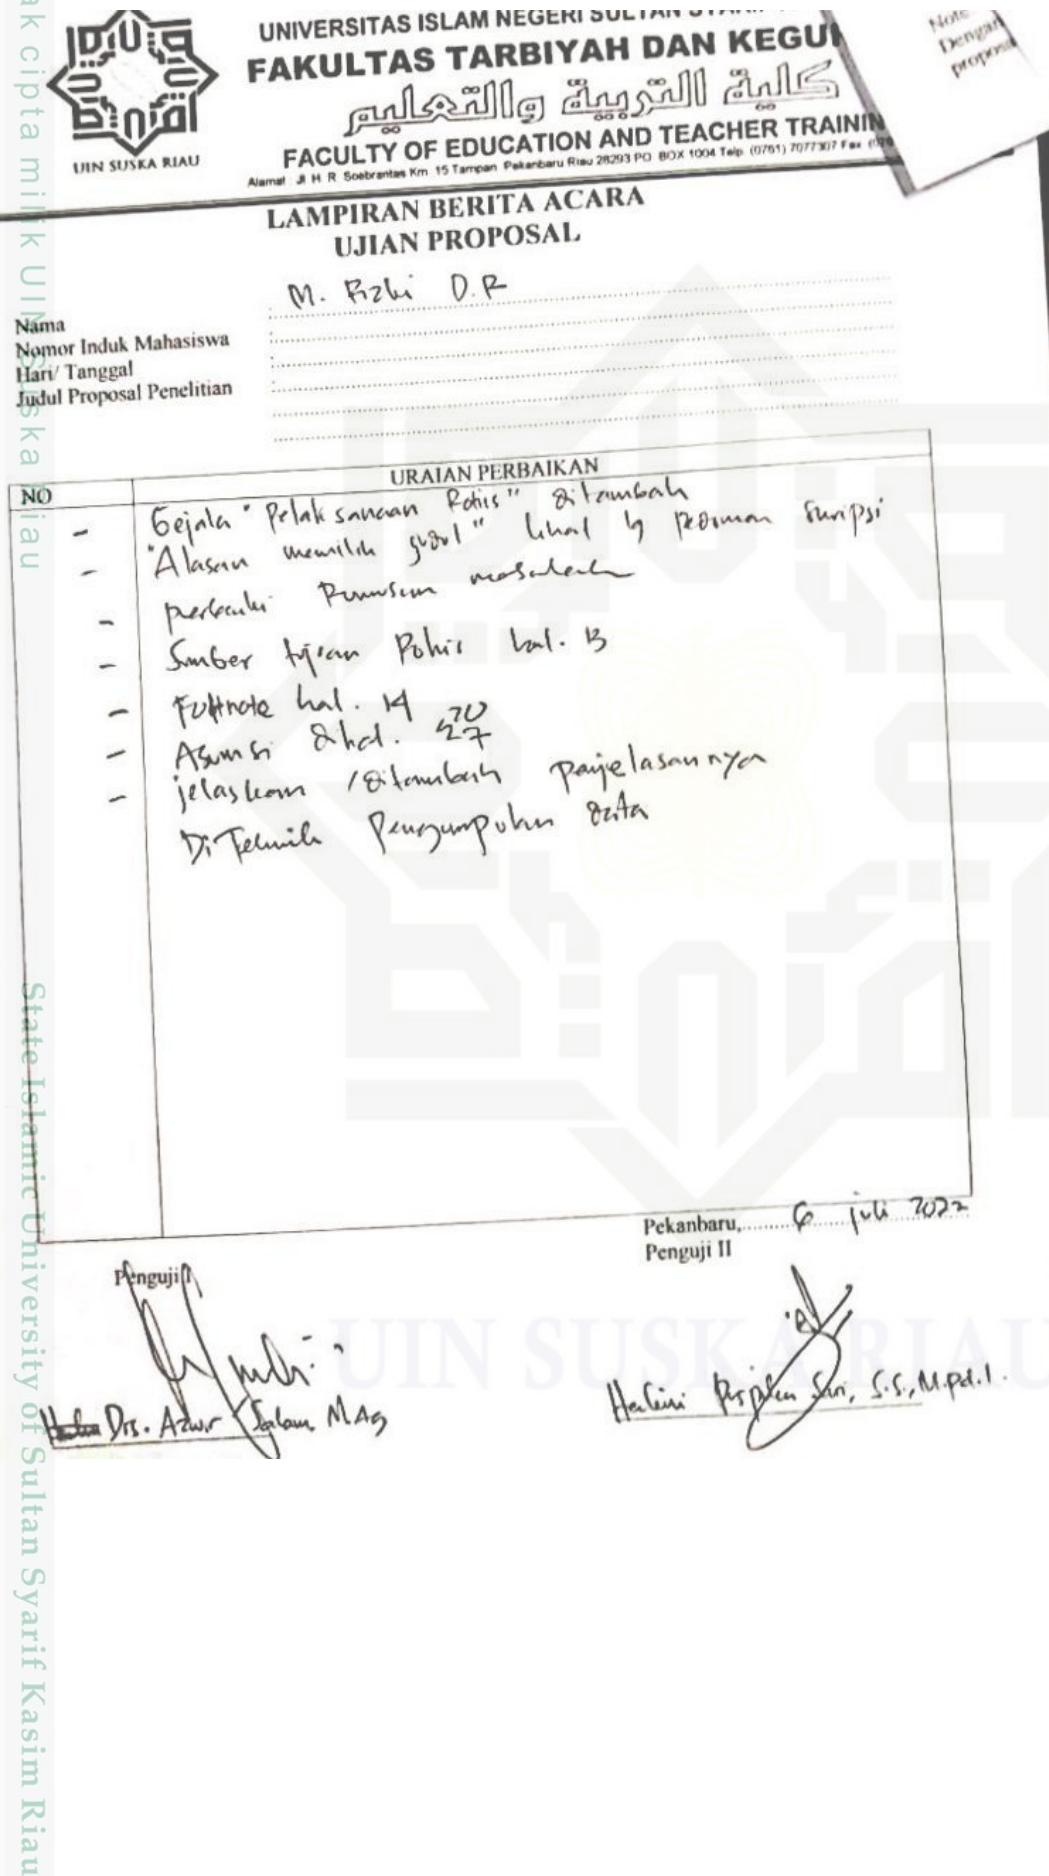 UNIVERSITAS ISLAM NEGERI SULTAN
FAKULTAS TARBIYAH DAN KEGU
كلية التربية والتعليم
FACULTY OF EDUCATION AND TEACHER TRAININ
Alamat : Jl H. R. Soebrantas Km. 15 Tampan Pekanbaru Riau 28293 PO. BOX 1004 Telp. (0761) 7077307 Fax.
UIN SUSKA RIAU
Note
Dengan
proposal
LAMPIRAN BERITA ACARA
UJIAN PROPOSAL
Nama M. Rizki D.R
Nomor Induk Mahasiswa
Hari/ Tanggal
Judul Proposal Penelitian
NO URAIAN PERBAIKAN
- Gejala "Pelaksanaan Rohis" ditambah
- "Alasan memilih judul" lihat pedoman skripsi
perbaiki Rumusan masalah
- Sumber tujuan Rohis hal. 13
- Footnote hal. 14
- Asumsi dihal. 27
- jelaskan / ditambah penjelasannya
Di Teknik Pengumpulan data
Pekanbaru, 6 juli 2022
Penguji I
Penguji II
Drs. Azwir Salam, M.Ag
Sari, S.S., M.Pd.I.
ak cipta milik UIN Suska Riau
State Islamic University of Sultan Syarif Kasim Riau
UIN SUSKA RIAU